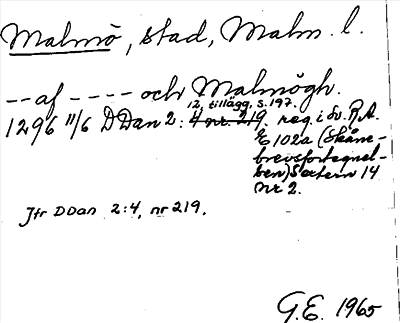 Malmö, stad, Malm. l.
-- af ---- och Malmögh.
12, tillägg. s. 197.
1296 11/6 DDan 2: 4 nr. 219. reg. i Sv. R.A.
E 102a (Skåne-
brevsförtegnel-
sen) Sextern 14
nr 2.
Jfr DDan 2:4, nr 219.
G.E. 1965